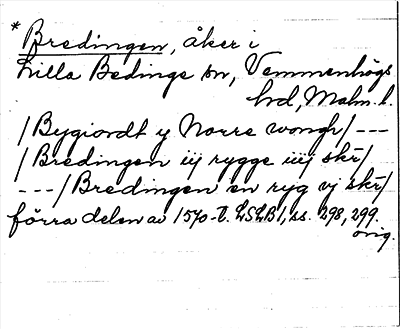 * Bredingen, åker i
Lilla Bedinge sn, Vemmenhögs
hd, Malm. l.
/Bygiordt y Norre wongh/ ---
/Bredingen iij rygge iiij skr/
---/Bredingen en ryg vj skr/
förra delen av 1570-t. LSLB 1, ss. 298, 299.
orig.